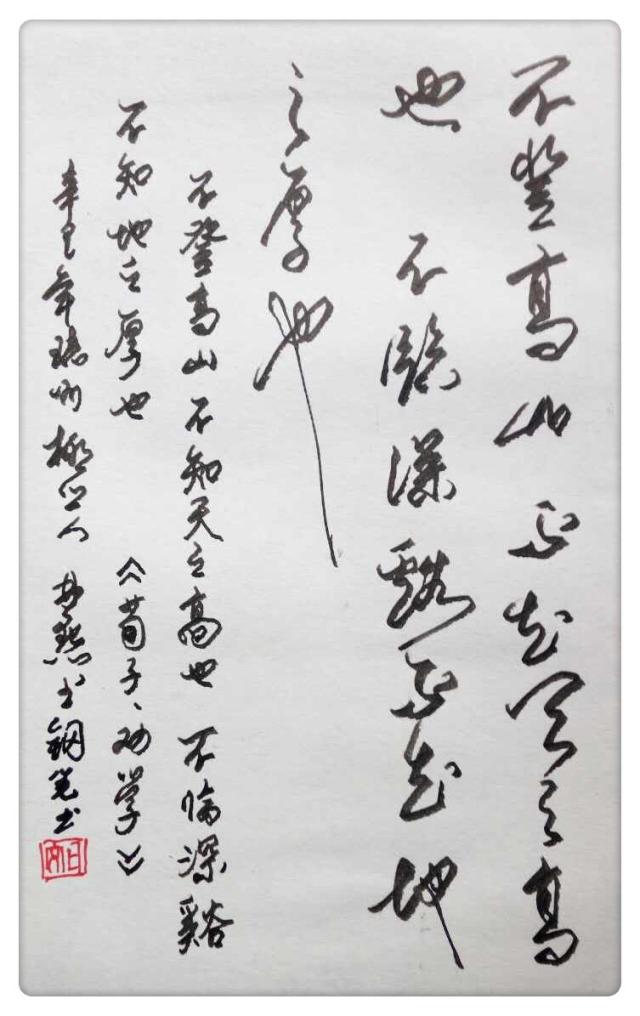 不登高山不知天之高
也 不臨深谿不知地
之厚也
不登高山不知天之高也 不临深谿
不知地之厚也 《荀子、劝学》
辛丑年 人 书 钢笔书